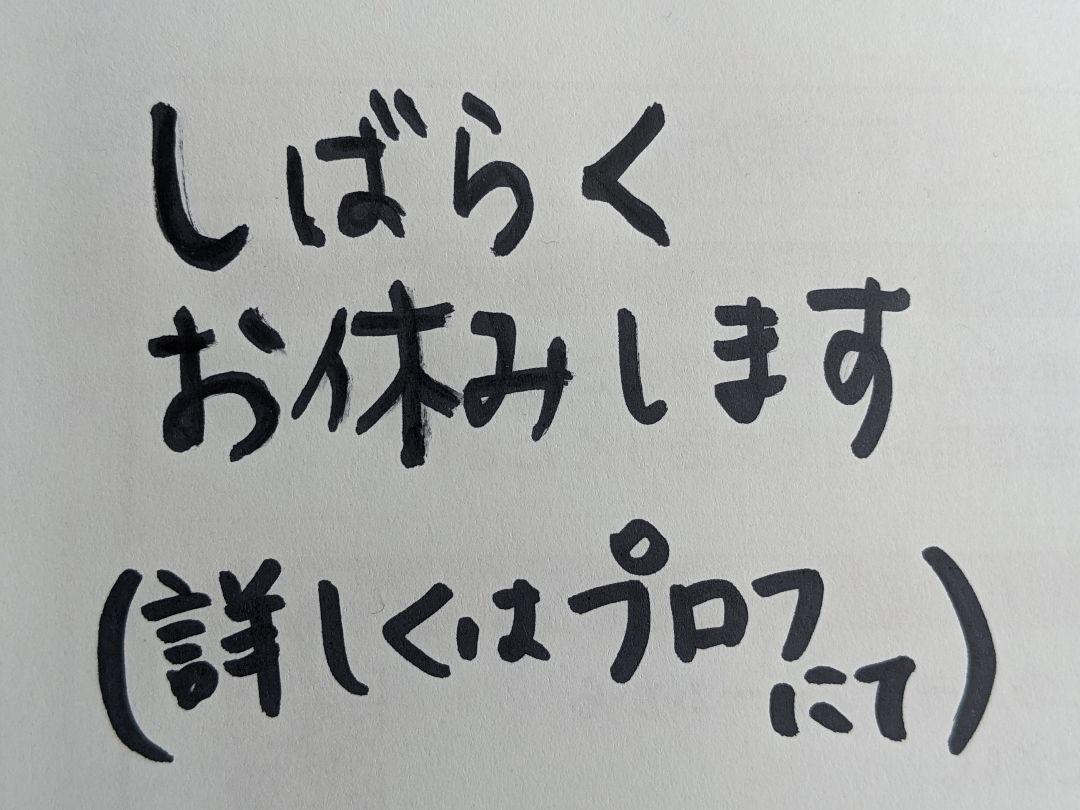 しばらく
お休みします
(詳しくはプロフ
にて)